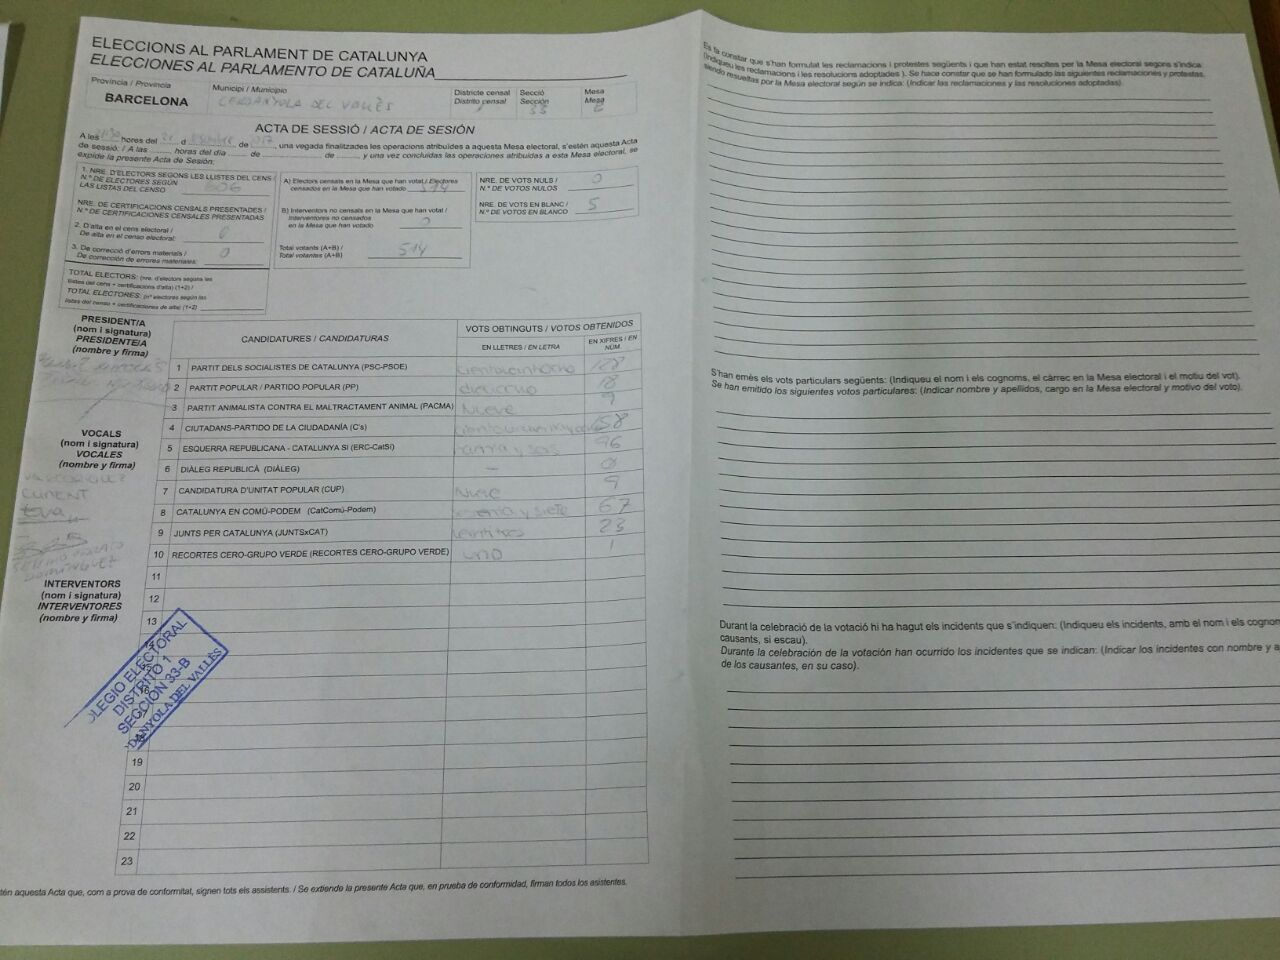 ELECCIONS AL PARLAMENT DE CATALUNYA
ELECCIONES AL PARLAMENTO DE CATALUÑA
Província / Provincia
BARCELONA
Municipi / Municipio
CERDANYOLA DEL VALLÈS
Districte censal
Distrito censal
1
Secció
Sección
33
Mesa
Mesa
ACTA DE SESSIÓ / ACTA DE SESIÓN
A les hores del d de , una vegada finalitzades les operacions atribuïdes a aquesta Mesa electoral, s'estén aquesta Acta
de sessió: / A las ........ horas del día ...... de .................... de ........, y una vez concluidas las operaciones atribuidas a esta Mesa electoral, se
expide la presente Acta de Sesión:
1. NRE. D'ELECTORS SEGONS LES LLISTES DEL CENS /
N.º DE ELECTORES SEGÚN
LAS LISTAS DEL CENSO 606
NRE. DE CERTIFICACIONS CENSALS PRESENTADES /
N.º DE CERTIFICACIONES CENSALES PRESENTADAS
2. D'alta en el cens electoral /
De alta en el censo electoral: 0
3. De correcció d'errors materials /
De corrección de errores materiales: 0
TOTAL ELECTORS: (nre. d'electors segons les
llistes del cens + certificacions d'alta) (1+2) /
TOTAL ELECTORES: (nº electores según las
listas del censo + certificaciones de alta) (1+2)
A) Electors censats en la Mesa que han votat / Electores
censados en la Mesa que han votado 514
B) Interventors no censats en la Mesa que han votat /
Interventores no censados
en la Mesa que han votado 0
Total votants (A+B) /
Total votantes (A+B) 514
NRE. DE VOTS NULS /
N.º DE VOTOS NULOS 0
NRE. DE VOTS EN BLANC /
N.º DE VOTOS EN BLANCO 5
PRESIDENT/A
(nom i signatura)
PRESIDENTE/A
(nombre y firma)
VOCALS
(nom i signatura)
VOCALES
(nombre y firma)
CLIMENT
Eva
SERGIO
DOMINGUEZ
INTERVENTORS
(nom i signatura)
INTERVENTORES
(nombre y firma)
CANDIDATURES / CANDIDATURAS
VOTS OBTINGUTS / VOTOS OBTENIDOS
EN LLETRES / EN LETRA
EN XIFRES / EN NÚM.
1 PARTIT DELS SOCIALISTES DE CATALUNYA (PSC-PSOE) 128
2 PARTIT POPULAR / PARTIDO POPULAR (PP) dieciocho 18
3 PARTIT ANIMALISTA CONTRA EL MALTRACTAMENT ANIMAL (PACMA) Nueve 9
4 CIUTADANS-PARTIDO DE LA CIUDADANÍA (C's) 158
5 ESQUERRA REPUBLICANA - CATALUNYA SÍ (ERC-CatSí) noventa y seis 96
6 DIÀLEG REPUBLICÀ (DIÀLEG) — 0
7 CANDIDATURA D'UNITAT POPULAR (CUP) Nueve 9
8 CATALUNYA EN COMÚ-PODEM (CatComú-Podem) sesenta y siete 67
9 JUNTS PER CATALUNYA (JUNTSxCAT) veintitres 23
10 RECORTES CERO-GRUPO VERDE (RECORTES CERO-GRUPO VERDE) uno 1
11
12
13
14
15
16
18
19
20
21
22
23
OLEGIO ELECTORAL
DISTRITO 1
SECCION 33-B
DANYOLA DEL VALLÈS
tén aquesta Acta que, com a prova de conformitat, signen tots els assistents. / Se extiende la presente Acta que, en prueba de conformidad, firman todos los asistentes.
Es fa constar que s'han formulat les reclamacions i protestes següents i que han estat resoltes per la Mesa electoral segons s'indica:
(Indiqueu les reclamacions i les resolucions adoptades ). Se hace constar que se han formulado las siguientes reclamaciones y protestas,
siendo resueltas por la Mesa electoral según se indica: (Indicar las reclamaciones y las resoluciones adoptadas).
S'han emès els vots particulars següents: (Indiqueu el nom i els cognoms, el càrrec en la Mesa electoral i el motiu del vot).
Se han emitido los siguientes votos particulares: (Indicar nombre y apellidos, cargo en la Mesa electoral y motivo del voto).
Durant la celebració de la votació hi ha hagut els incidents que s'indiquen: (Indiqueu els incidents, amb el nom i els cognom
causants, si escau).
Durante la celebración de la votación han ocurrido los incidentes que se indican: (Indicar los incidentes con nombre y a
de los causantes, en su caso).